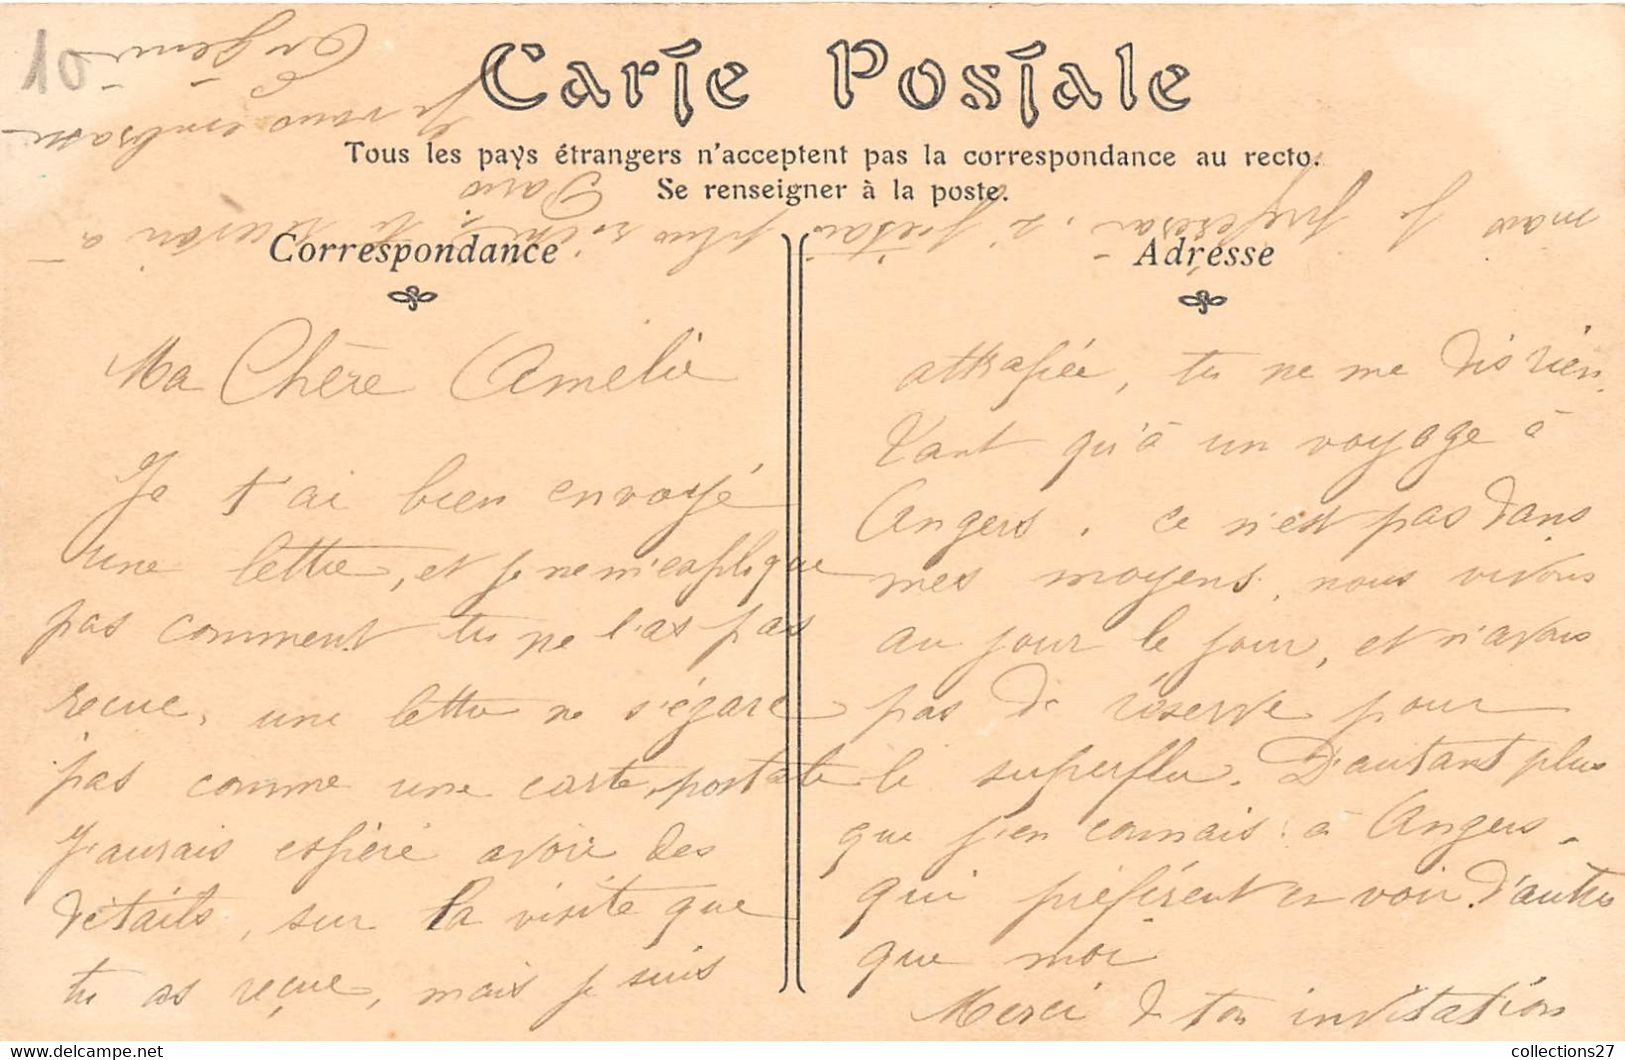 10
Carte Postale
Tous les pays étrangers n'acceptent pas la correspondance au recto.
Se renseigner à la poste.
Correspondance
Adresse
Ma Chère Amélie
Je t'ai bien envoyé
une lettre, et je ne m'explique
pas comment tu ne l'as pas
reçue, une lettre ne s'égare
pas comme une carte postale
J'aurais espéré avoir des
détails, sur la visite que
tu as reçue, mais je suis
attrapée, tu ne me dis rien.
Tant qu'à un voyage à
Angers. ce n'est pas dans
mes moyens, nous vivons
au jour le jour, et n'avons
pas de réserve pour
le superflu. D'autant plus
que j'en connais à Angers.
qui préfèrent en voir d'autres
que moi
Merci de ton invitation
mais je préférerai, si j'étais
plus riche, te recevoir à
Paris
Je vous embrasse
Eugénie
collections27